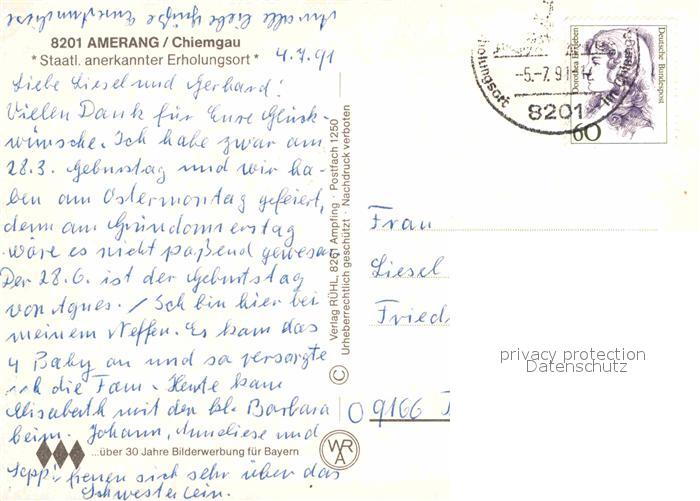 Ihr alle liebe Grüße
8201 AMERANG / Chiemgau
*Staatl. anerkannter Erholungsort*
4.7.91
Liebe Liesel und Gerhard!
Vielen Dank für Eure Glück-
wünsche. Ich habe zwar am
28.3. Geburtstag und wir ha-
ben am Ostermontag gefeiert,
denn am Gründonnerstag
wäre es nicht paßend gewesen.
Der 28.6. ist der Geburtstag
von Agnes. / Ich bin hier bei
meinem Neffen. Es kam das
4 Baby an und so versorgte
ich die Fam. Heute kam
Elisabeth mit den kl. Barbara
heim. Johann, Anneliese und
...über 30 Jahre Bilderwerbung für Bayern
Seppi freuen sich sehr über das
Schwesterlein.
Verlag RÜHL, 8261 Ampfing · Postfach 1250
Urheberrechtlich geschützt · Nachdruck verboten
©
WRA
Erholungsort
-5.-7.91
8201
im Chiemgau
Deutsche Bundespost
Dorothea Erxleben
60
Frau
Liesel
Fried
O 9166
privacy protection
Datenschutz